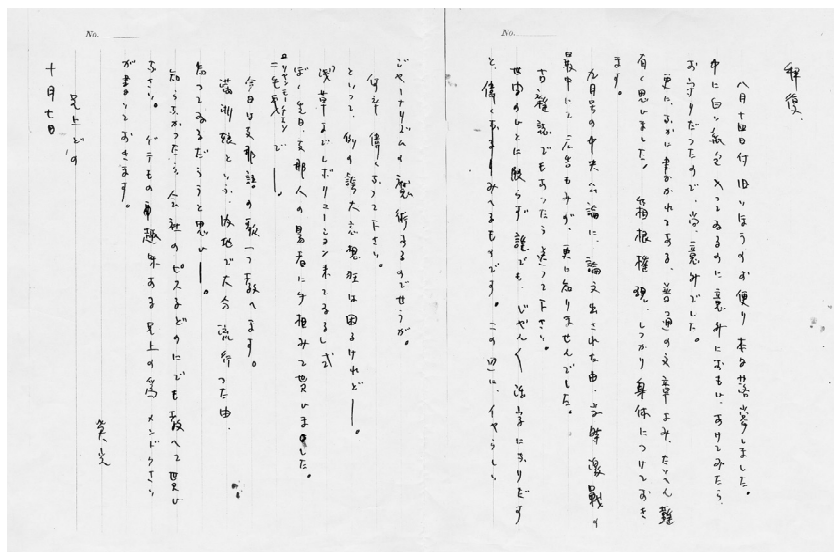 No.
拝復、
八月十四日付旧いほうのお便り本日落掌しました。
中に白い紙を入つてゐるのに意外におもい、あけてみたら、
お守りだつたので、尚、意外でした。
更に、おかに書かれてある、普通の文章よみ、たいへん難
有く思いました。箱根権現、しつかり身体につけておき
ます。
九月号の中央公論に、論文出された由、当時激戦の
最中にて、広告もみず、更に知りませんでした。
古雑誌でもあつたら送つて下さい。
世中のひとに限らず誰でも、じやんじやん活字になりだす
と、偉くなる、みへるものです。この辺に、イヤらしい
No.
ジャーナリズムの魔術あるのでせうが。
何卒偉くなつて下さい。
といつて、例の誇大妄想狂は困るけれど――。
浅草までレボリューション来てるらし式
ぼく先日、支那人の易者に手相みて貰いました。
二毛銭で――。
今日は支那語の歌一つ教へます。
満洲娘という、彼地で大分流行つた由、
知つてゐるだろうと思ひ――。
知らなかつたら、会社のピスなどのにでも教へて貰ひ
なさい。ゲテもの趣味ある兄上の為メンドクさい
が書いておきます。
十月七日
兄上どの